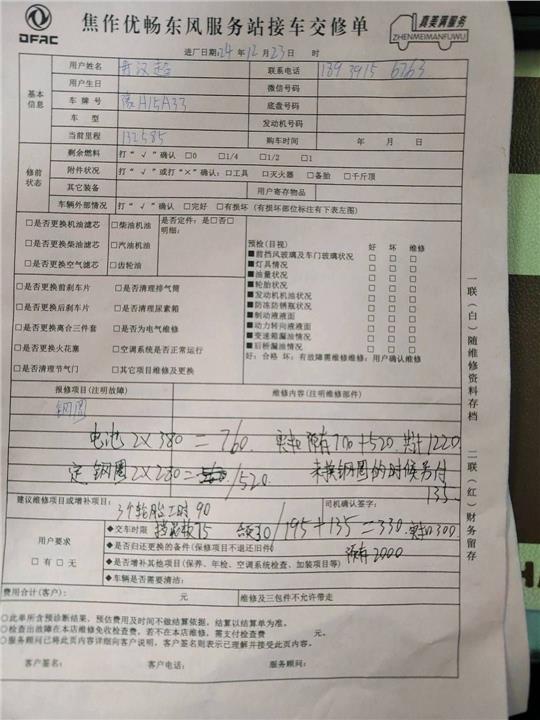 DFAC
焦作优畅东风服务站接车交修单
真美满服务
ZHENMEIMANFUWU
进厂日期:24 年 12 月 23 日 时
基本信息
用户姓名
联系电话
用户生日 微信号码
车牌号 豫H15A33 底盘号码
车型 发动机号码
当前里程 132585 购车时间 年 月 日
修前状态
剩余燃料 打“√”确认 □0 □1/4 □1/2 □1
附件状况 打“√”或打“×”确认:□工具 □灭火器 □备胎 □千斤顶
其它装备 用户寄存物品
车辆外部情况 打“√”确认 □完好 □有损坏(有损坏部位标注有下表左图)
□是否更换机油滤芯 □柴油机油 是否定件:是□否□
明细:
□是否更换柴油滤芯 □汽油机油
□是否更换空气滤芯 □齿轮油
□是否更换前刹车片 □是否清理排气筒
□是否更换后刹车片 □是否清理尿素箱
□是否更换离合三件套 □是否为电气维修
□是否更换火花塞 □空调系统是否正常运行
□是否清理节气门 □其它项目维修及更换
预检(目视) 好 坏 维修
■前挡风玻璃及车门玻璃状况 □ □ □
■灯具情况 □ □ □
■油量状况 □ □ □
■轮胎状况 □ □ □
■发动机机油状况 □ □ □
■防冻防锈瓶状况 □ □ □
■制动液液面 □ □ □
■动力转向液液面 □ □ □
■变速箱漏油情况 □ □ □
■后桥漏油情况 □ □ □
好:合格 坏:有故障需维修维修:用户确认维修
报修项目(注明故障) 维修内容(注明维修部件)
钢圈
电池 2×380=760. 预存700+520. 共计1220
定钢圈2×260= /520. 未换钢圈的时候另付
135.
建议维修项目或增补项目: 司机确认签字:
3个轮胎工时90
用户要求
□有 □无
◆交车时限 75 30/195+135=330. 300
◆是否归还更换的备件(保修项目不退还旧件) 预存2000
◆是否增补其他项目(保养、年检、空调系统检查、加装项目等)
◆车辆是否需要清洁:
费用合计(客户): 元 维修及三包件不允许带走
○此单所含预诊断结果,预估费用及时间不做结算依据。结算以结算单为准。
○检查出故障在本店维修免收检查费,若不在本店维修,需支付检查费 元。
○服务顾问已将此页内容详细向客户说明,客户签则表示已理解并接受此页内容。
客户签名: 客户电话: 服务顾问:
一联(白)随维修资料存档
二联(红)财务留存